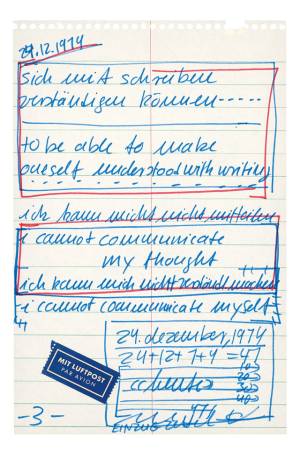 29.12.1974
sich mit schreiben
verständigen können-----
to be able to make
oneself understood with writing
ich kann mich nicht mitteilen
i cannot communicate
my thought
ich kann mich nicht verständl machen
i cannot communicate myself
29. dezember, 1974
29+12+7+4 =
100
200
300
400
MIT LUFTPOST
PAR AVION
-3-